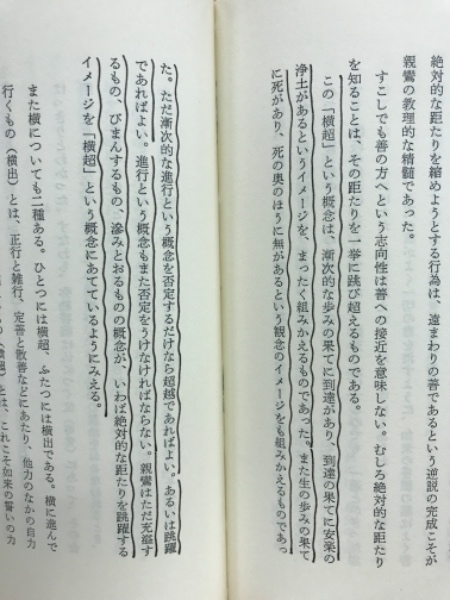 絶対的な距たりを縮めようとする行為は、遠まわりの善であるという逆説の完成こそが
親鸞の教理的な精髄であった。
すこしでも善の方へという志向性は善への接近を意味しない。むしろ絶対的な距たり
を知ることは、その距たりを一挙に跳び超えるものである。
この「横超」という概念は、漸次的な歩みの果てに到達があり、到達の果てに安楽の
浄土があるというイメージを、まったく組みかえるものであった。また生の歩みの果て
に死があり、死の奥のほうに無があるという観念のイメージをも組みかえるものであっ
た。ただ漸次的な進行という概念を否定するだけなら超越であればよい。あるいは跳躍
であればよい。進行という概念もまた否定をうけなければならない。親鸞はただ充溢す
るもの、びまんするもの、滲みとおるものの概念が、いわば絶対的な距たりを跳躍する
イメージを「横超」という概念にあてているようにみえる。
また横についても二種ある。ひとつには横超、ふたつには横出である。横に進んで
行くもの（横出）とは、正行と雑行、定善と散善などにあたり、他力のなかの自力
とは、これこそ如来の誓いの力